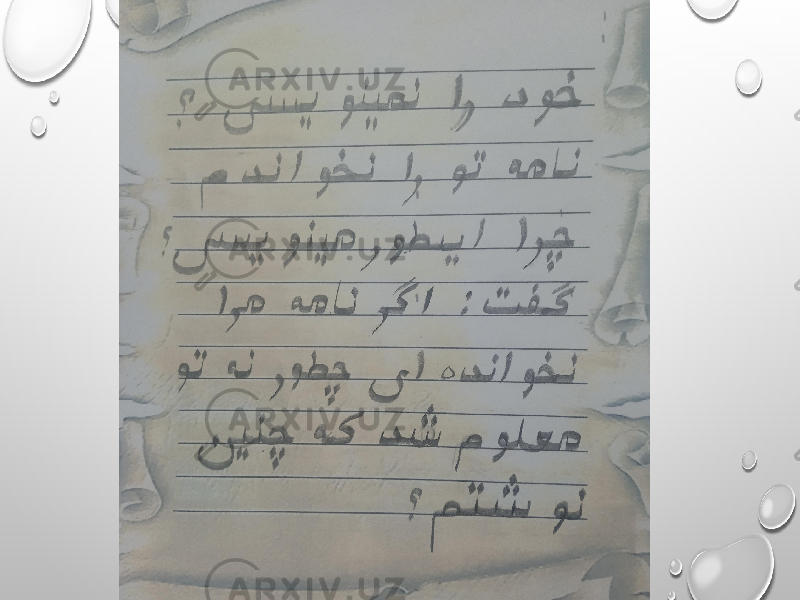 خود را نمینویسی؟
نامه تو را نخواندم
چرا اینطور مینویسی؟
گفت: اگر نامه مرا
نخوانده ای چطور نه تو
معلوم شد که چنین
نوشتم؟
ARXIV.UZ
ARXIV.UZ
ARXIV.UZ
ARXIV.UZ